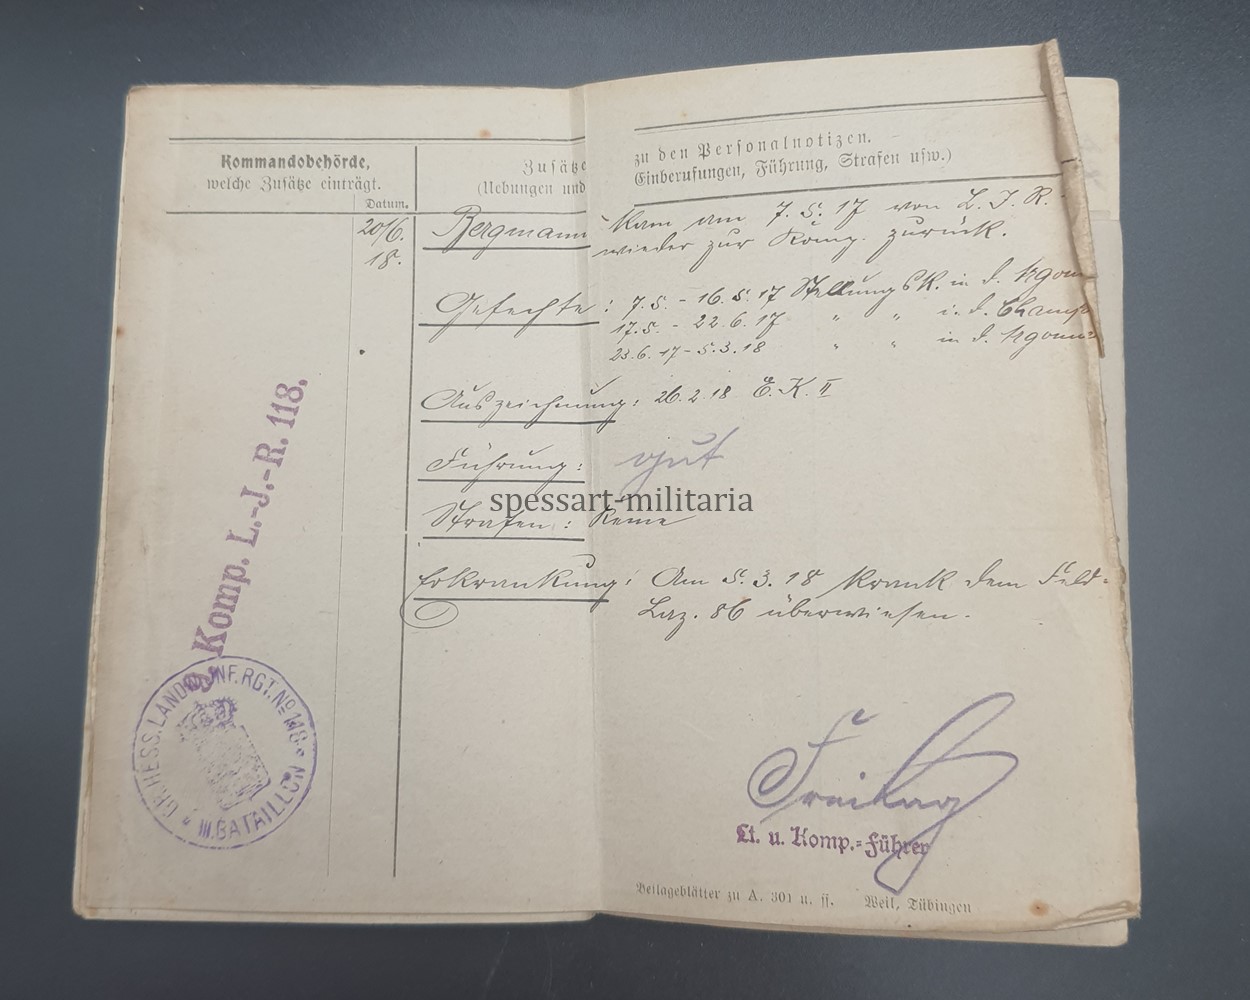 Kommandobehörde,
welche Zusätze einträgt.
Datum.
Zusätze
(Uebungen und
zu den Personalnotizen.
Einberufungen, Führung, Strafen usw.)
20/6.
18.
Bergmann kam am 7. 5. 17 von L. J. R.
wieder zur Komp. zurück.
Gefechte: 7.5. - 16.5.17 Stellungsk. in d. Argonn
17.5. - 22.6.17 " " i. d. Champ
23.6.17 - 5.3.18 " " in d. Argonn
Auszeichnung: 26.2.18 E. K. II
Führung: gut
Strafen: Keine
Erkrankung: Am 5.3.18 krank dem Feld-
Laz. 86 überwiesen.
Komp. L.-J.-R. 118.
GR. HESS. LANDW. INF. RGT. No 118.
III. BATAILLON
Freitag
Lt. u. Komp.-Führer
Beilageblätter zu A. 301 u. ff. Weil, Tübingen
spessart-militaria